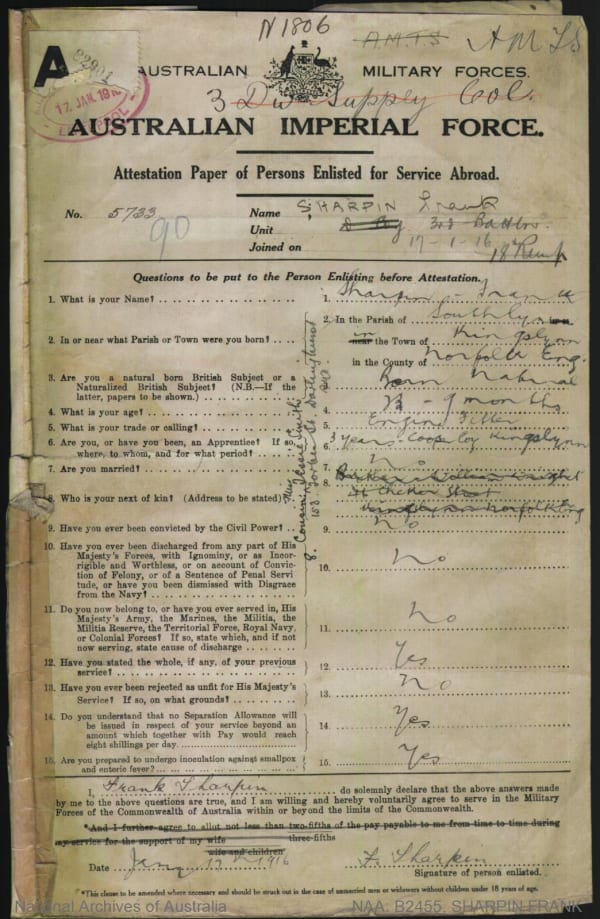 N 1806
A.M.T.S
A M T S
A
62901
17 JAN 1916
AUSTRALIAN MILITARY FORCES.
3 Div Supply Col.
AUSTRALIAN IMPERIAL FORCE.
Attestation Paper of Persons Enlisted for Service Abroad.
No. 5733 Name SHARPIN Frank
90
Unit D Coy 3rd Battn.
Joined on 17-1-16
18th Reinf
Questions to be put to the Person Enlisting before Attestation.
1. What is your Name? 1. Sharpin - Frank
2. In or near what Parish or Town were you born? 2. In the Parish of South Lynn in or
in near the Town of Kingslynn
in the County of Norfolk Eng.
3. Are you a natural born British Subject or a Naturalized British Subject? (N.B.—If the latter, papers to be shown.) 3. Born Natural
4. What is your age? 4. 23 - 9 months
5. What is your trade or calling? 5. Engine Fitter
6. Are you, or have you been, an Apprentice? If so, where, to whom, and for what period? 6. 3 years Cooper Coy Kingslynn
7. Are you married? 7. No
8. Who is your next of kin? (Address to be stated) 8.
Checker Street
Norfolk Eng
8. Cousin Miss Jessie Smith
153 Forbes St. Darlinghurst
9. Have you ever been convicted by the Civil Power? 9. No
10. Have you ever been discharged from any part of His Majesty's Forces, with Ignominy, or as Incorrigible and Worthless, or on account of Conviction of Felony, or of a Sentence of Penal Servitude, or have you been dismissed with Disgrace from the Navy? 10. No
11. Do you now belong to, or have you ever served in, His Majesty's Army, the Marines, the Militia, the Militia Reserve, the Territorial Force, Royal Navy, or Colonial Forces? If so, state which, and if not now serving, state cause of discharge 11. No
12. Have you stated the whole, if any, of your previous service? 12. Yes
13. Have you ever been rejected as unfit for His Majesty's Service? If so, on what grounds? 13. No
14. Do you understand that no Separation Allowance will be issued in respect of your service beyond an amount which together with Pay would reach eight shillings per day. 14. Yes
15. Are you prepared to undergo inoculation against smallpox and enteric fever? 15. Yes
I, Frank Sharpin do solemnly declare that the above answers made
by me to the above questions are true, and I am willing and hereby voluntarily agree to serve in the Military
Forces of the Commonwealth of Australia within or beyond the limits of the Commonwealth.
*And I further agree to allot not less than two-fifths of the pay payable to me from time to time during
three-fifths
my service for the support of my wife
wife and children
Date Jany 17th 1916 F. Sharpin
Signature of person enlisted.
*This clause to be amended where necessary and should be struck out in the case of unmarried men or widowers without children under 18 years of age.
National Archives of Australia NAA: B2455, SHARPIN FRANK